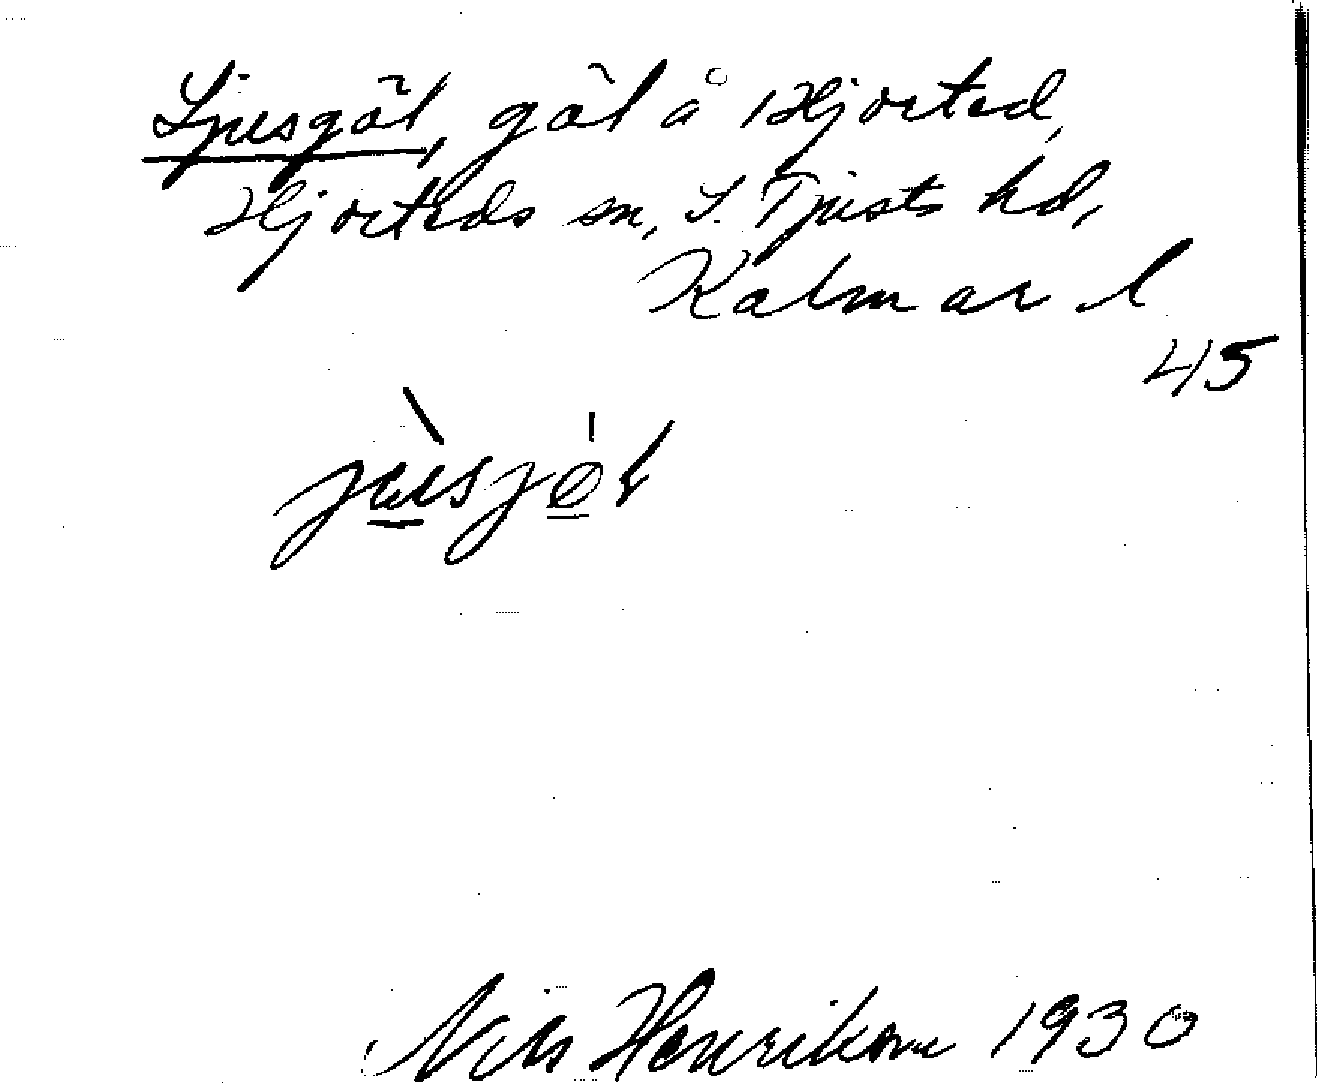 Ljusgöl, göl å Hjorted,
Hjorteds sn, S. Tjusts hd,
Kalmar l
45
jusjøl
Nils Henrikson 1930